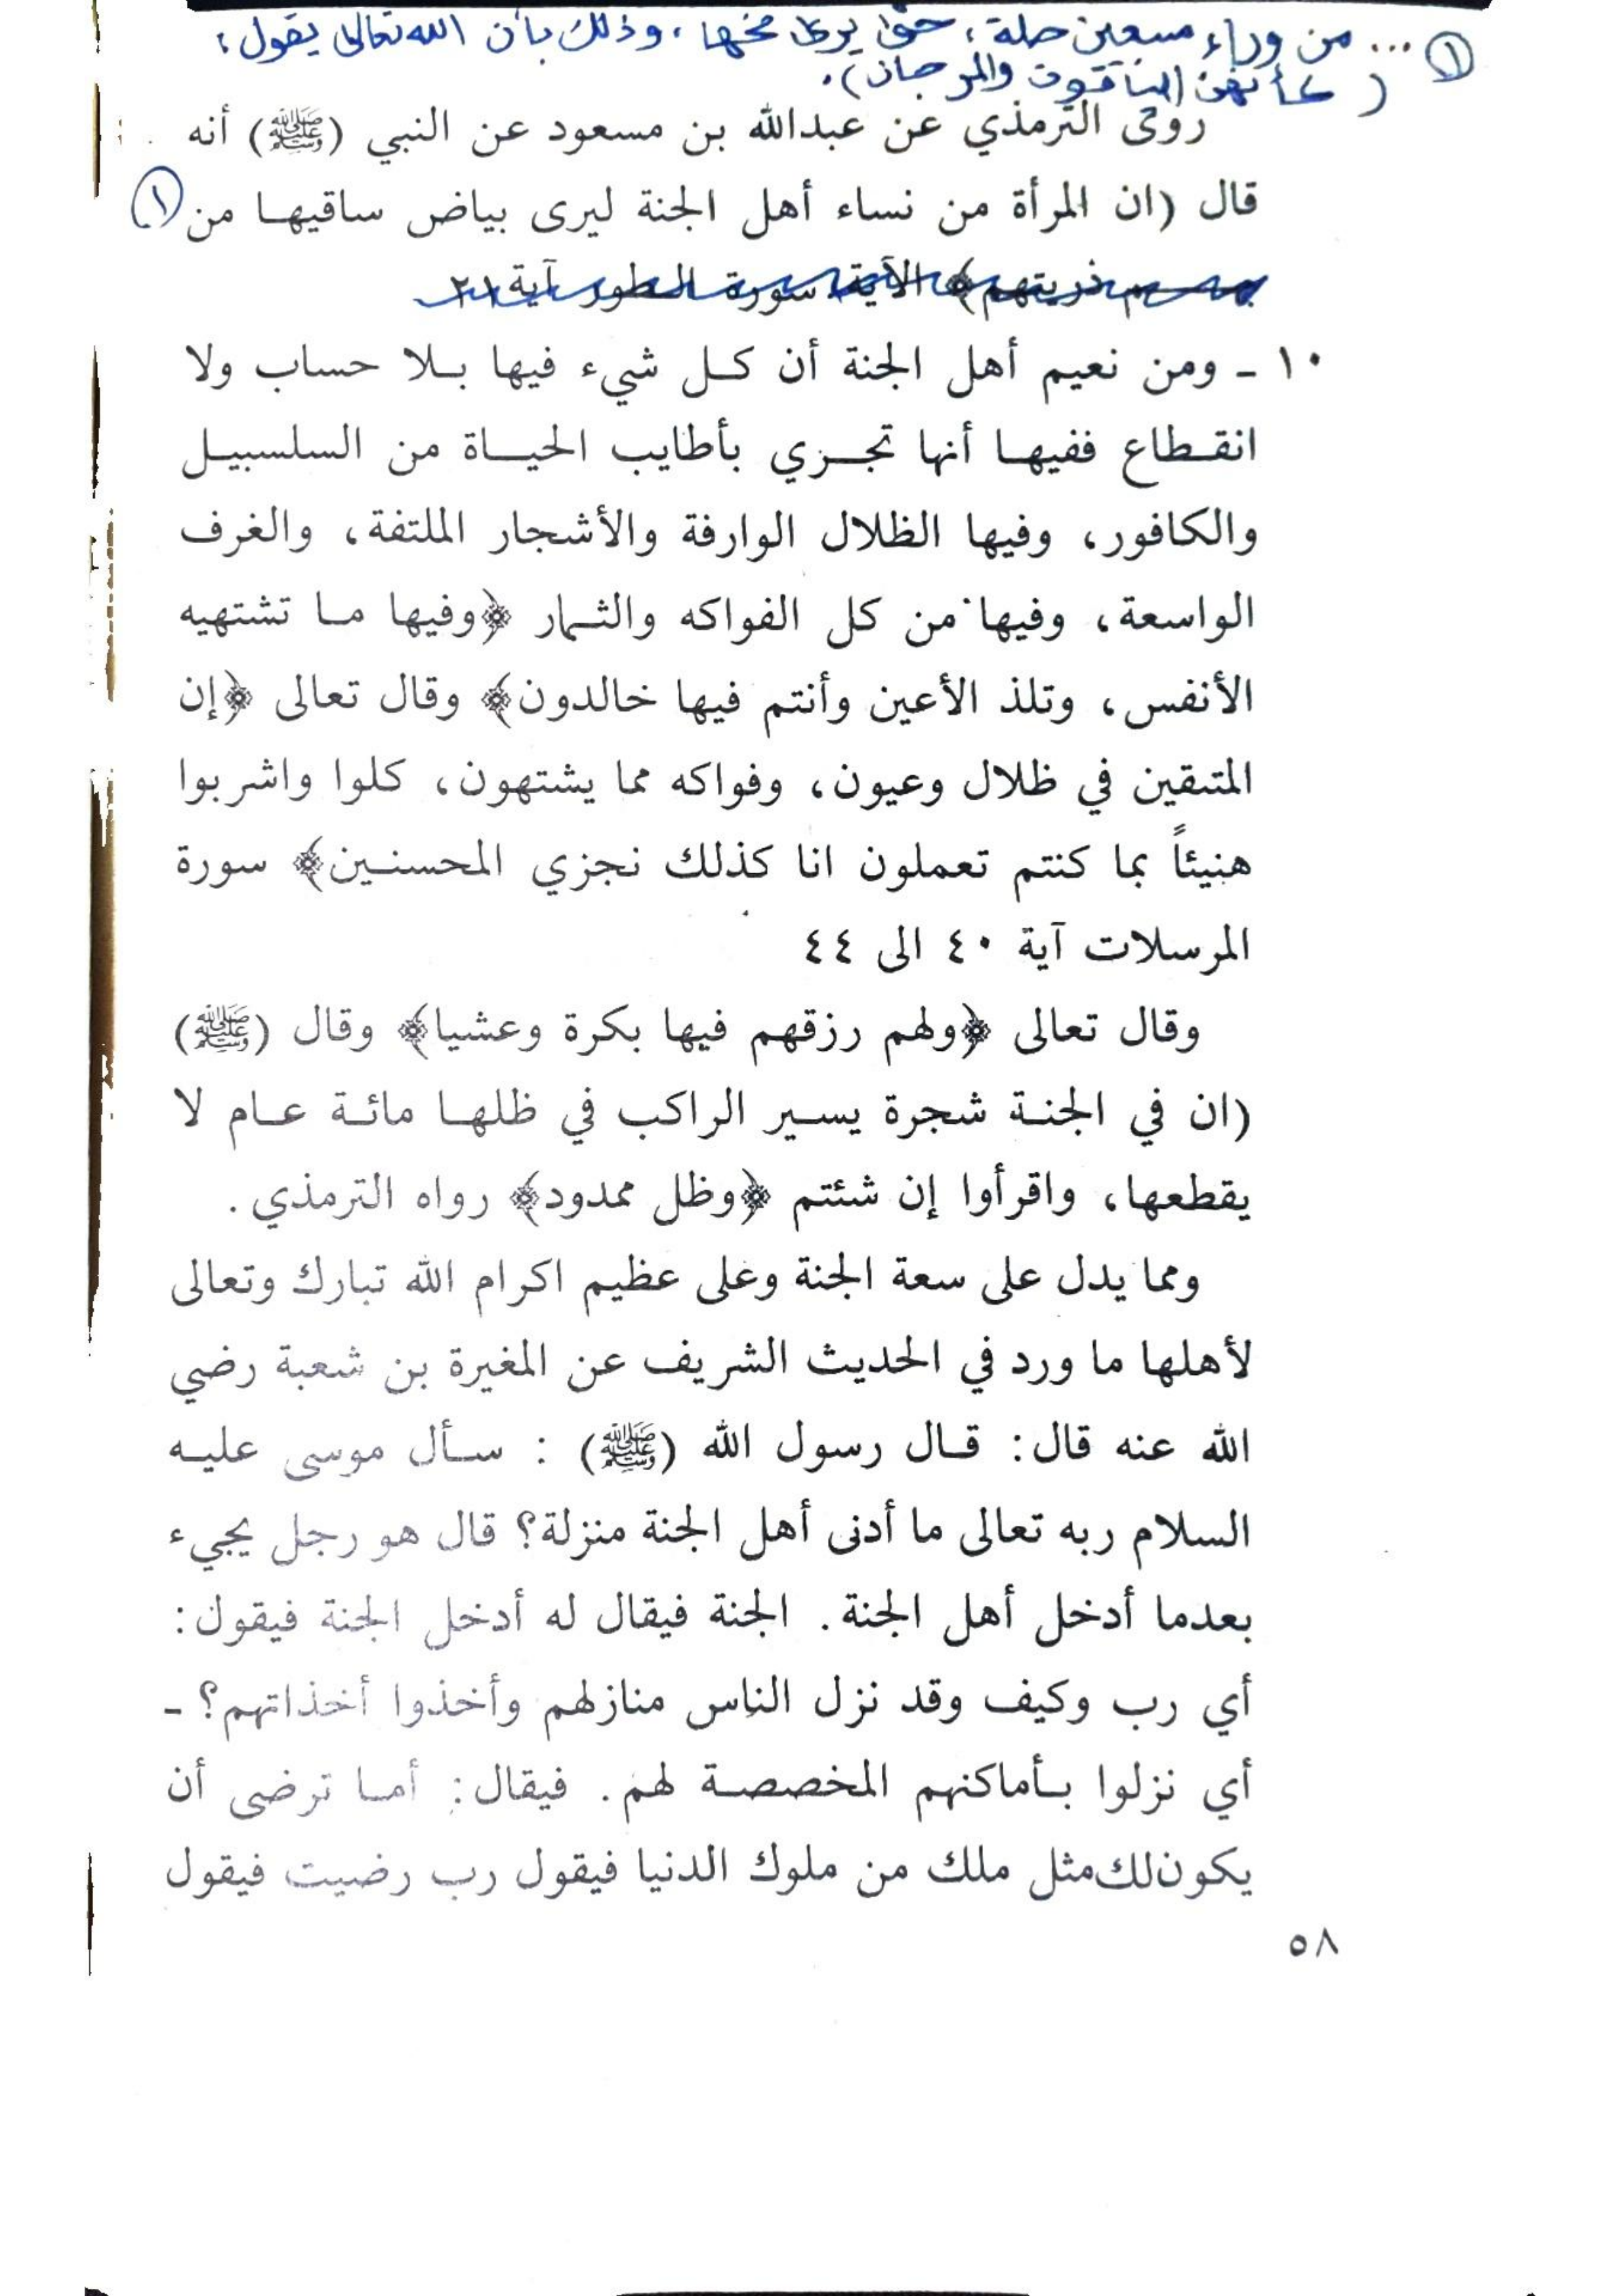 (١) ... من وراء سبعين حلة، حتى يرى مخها، وذلك بأن الله تعالى يقول:
(كأنهن الياقوت والمرجان).
روى الترمذي عن عبدالله بن مسعود عن النبي (ﷺ) أنه
قال (ان المرأة من نساء أهل الجنة ليرى بياض ساقيها من (١)
ذريتهم﴾ الآية سورة الطور آية ٢١
١٠ ـ ومن نعيم أهل الجنة أن كل شيء فيها بلا حساب ولا
انقطاع ففيها أنها تجري بأطايب الحياة من السلسبيل
والكافور، وفيها الظلال الوارفة والأشجار الملتفة، والغرف
الواسعة، وفيها من كل الفواكه والثمار ﴿وفيها ما تشتهيه
الأنفس، وتلذ الأعين وأنتم فيها خالدون﴾ وقال تعالى ﴿إن
المتقين في ظلال وعيون، وفواكه مما يشتهون، كلوا واشربوا
هنيئاً بما كنتم تعملون انا كذلك نجزي المحسنين﴾ سورة
المرسلات آية ٤٠ الى ٤٤
وقال تعالى ﴿ولهم رزقهم فيها بكرة وعشيا﴾ وقال (ﷺ)
(ان في الجنة شجرة يسير الراكب في ظلها مائة عام لا
يقطعها، واقرأوا إن شئتم ﴿وظل ممدود﴾ رواه الترمذي .
ومما يدل على سعة الجنة وعلى عظيم اكرام الله تبارك وتعالى
لأهلها ما ورد في الحديث الشريف عن المغيرة بن شعبة رضي
الله عنه قال: قال رسول الله (ﷺ) : سأل موسى عليه
السلام ربه تعالى ما أدنى أهل الجنة منزلة؟ قال هو رجل يجيء
بعدما أدخل أهل الجنة . الجنة فيقال له أدخل الجنة فيقول:
أي رب وكيف وقد نزل الناس منازلهم وأخذوا أخذاتهم؟ ـ
أي نزلوا بأماكنهم المخصصة لهم . فيقال: أما ترضى أن
يكون لك مثل ملك من ملوك الدنيا فيقول رب رضيت فيقول
٥٨